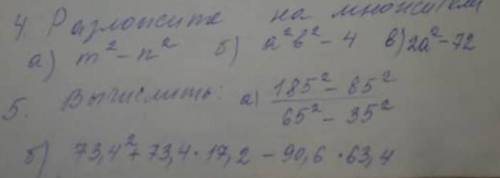 4. Разложите на множители
а) m² - n² б) a²b² - 4 в) 2a² - 72
5. Вычислить: а) (185² - 85²) / (65² - 35²)
б) 73,4² + 73,4 · 17,2 - 90,6 · 63,4